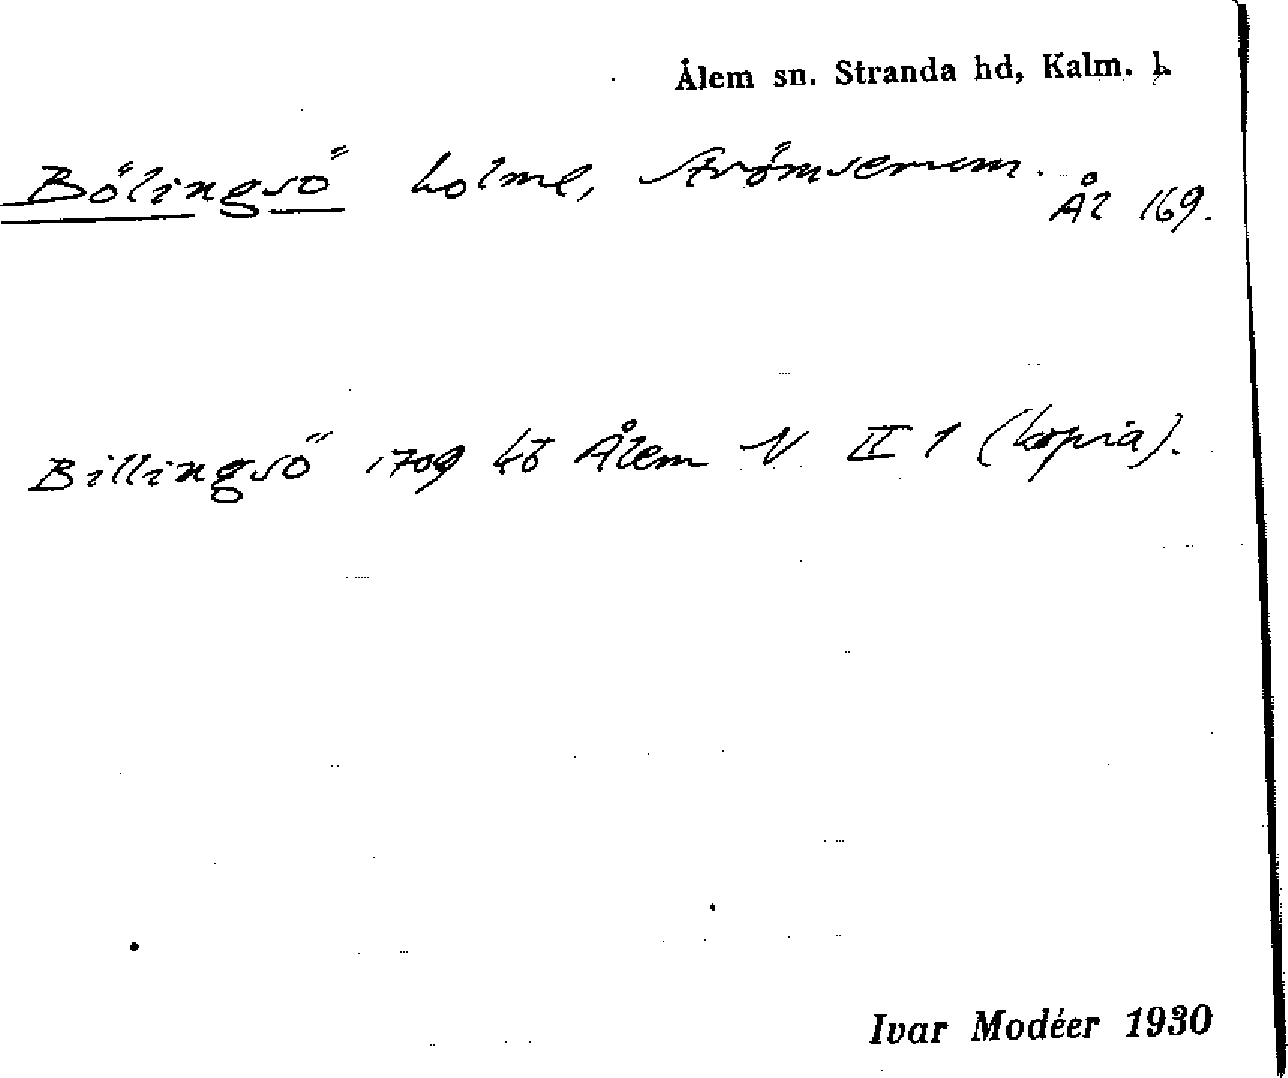 Ålem sn. Stranda hd, Kalm. l.
Bölingsö holme, Strömserum.
Ål 169.
Billingsö 1709 kb Ålem N II 1 (kopia).
Ivar Modéer 1930